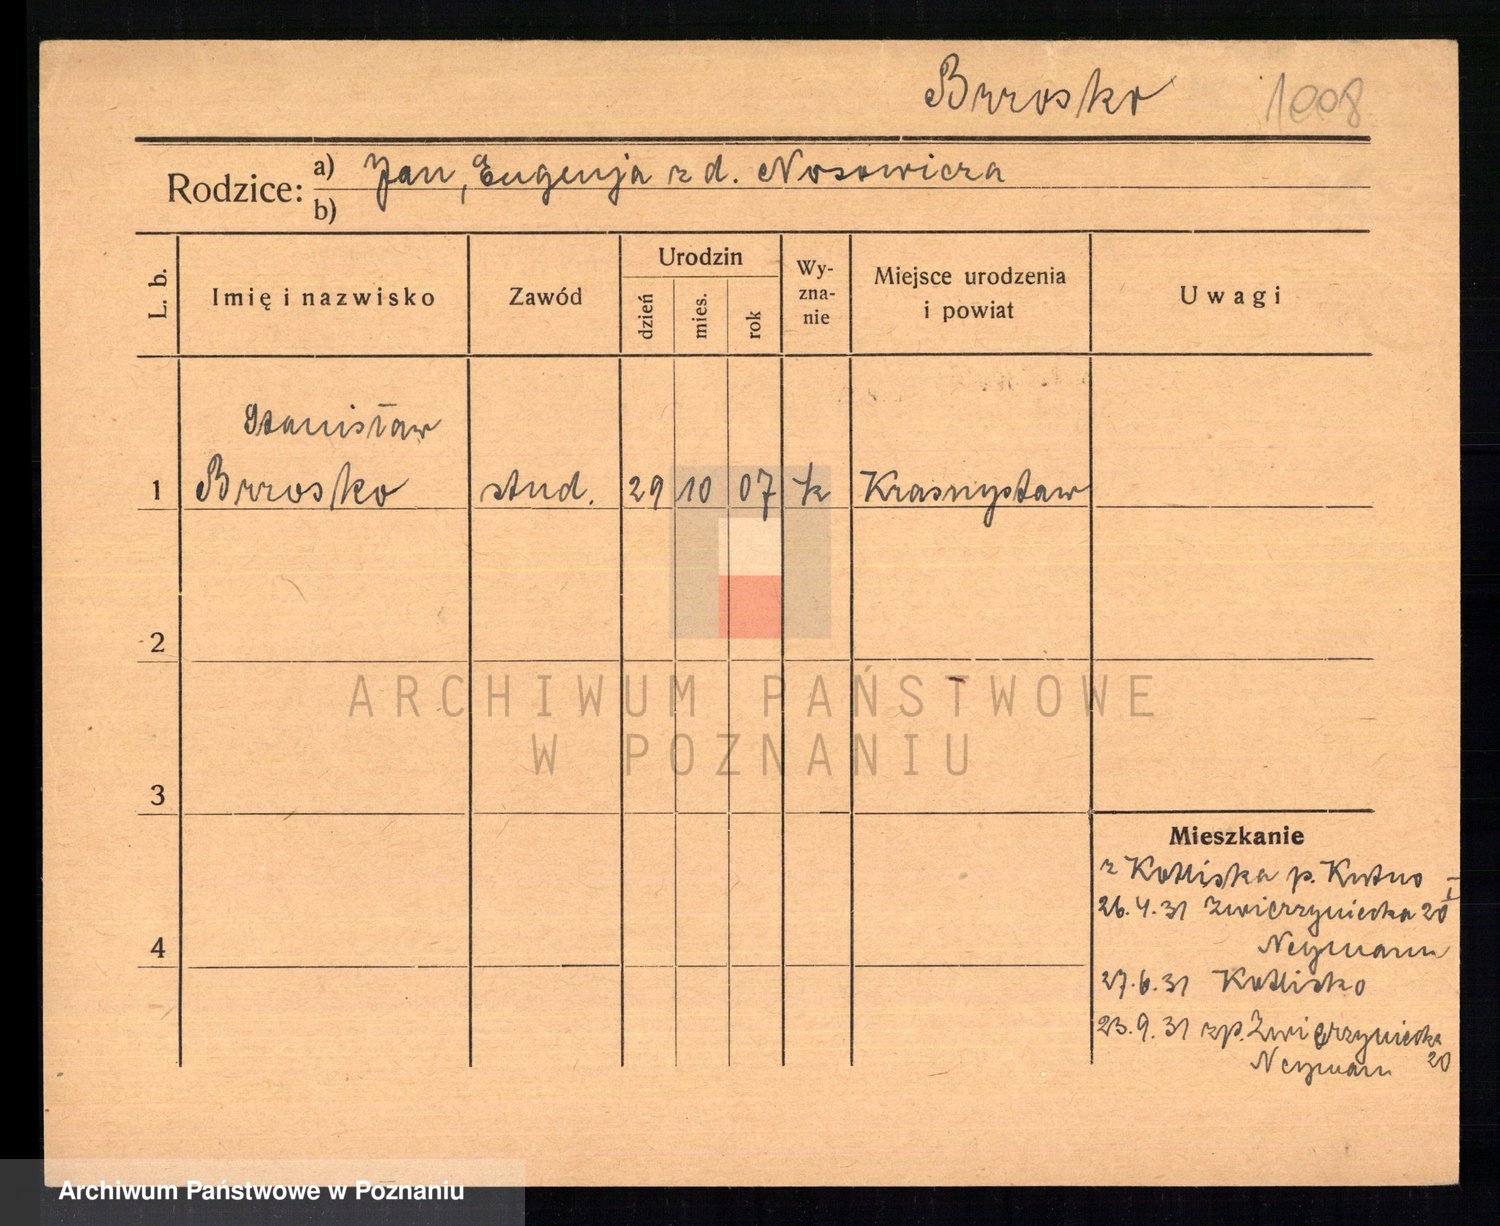 Brzosko 1008
Rodzice: a) Jan, Eugenja z d. Nosowicza
b)
L. b. Imię i nazwisko Zawód Urodzin dzień mies. rok Wy-zna-nie Miejsce urodzenia i powiat Uwagi
Stanisław
1 Brzosko stud. 29 10 07 k Krasnystaw
2
ARCHIWUM PAŃSTWOWE
W POZNANIU
3
Mieszkanie
z Kotliska p. Kutno
26.4.31 Zwierzyniecka 20 I
4
Neymann
27.6.31 Kotlisko
23.9.31 zp. Zwierzyniecka
20
Neyman
Archiwum Państwowe w Poznaniu